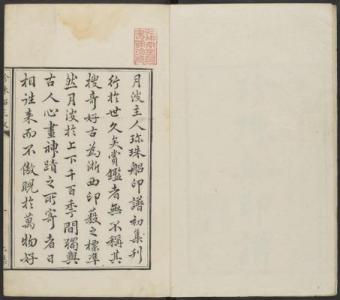 月波主人珍珠船印譜初集刊
行於世久矣賞鑑者無不稱其
搜奇好古為浙西印藪之標準
然月波於上下千百季間獨與
古人心畫神蹟之所寄者日
相往來而不傲睨於萬物好